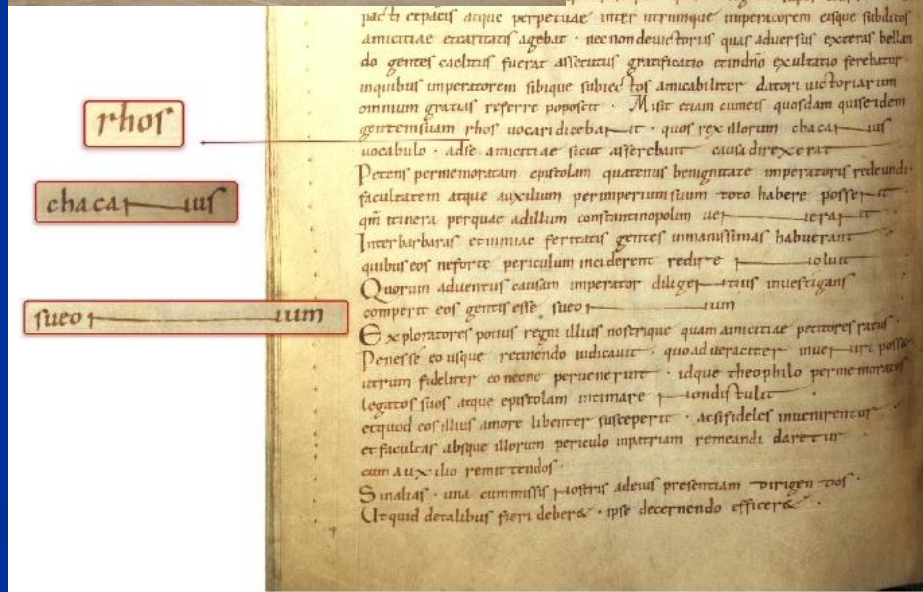 rhos
chacanus
sueonum
pacti et pacis atque perpetuae inter utrumque imperatorem eique subditos
amicitiae et caritatis agebat · necnon de victoriis quas adversus exteras bellan
do gentes caelitus fuerat assecutus gratificatio et in dno exultatio ferebatur
in quibus imperatorem sibique subiectos amicabiliter datori victoriarum
omnium gratias referre poposcit · Misit etiam cum eis quosdam qui se idem
gentem suam rhos vocari dicebant · quos rex illorum chacanus
vocabulo · ad se amicitiae sicut asserebant causa direxerat
Petens per memoratam epistolam quatenus benignitate imperatoris redeundi
facultatem atque auxilium per imperium suum toto habere possent
qm itinera per quae ad illum constantinopolim venerant
Inter barbaras et nimiae feritatis gentes inmanissimas habuerant
quibus eos ne forte periculum inciderent redire noluit
Quorum adventus causam imperator diligentius investigans
comperit eos gentis esse sueonum
Exploratores potius regni illius nostrique quam amicitiae petitores ratus
Penes se eo usque retinendo iudicavit · quo ad veraciter inveniri posset
utrum fideliter eo necne pervenerint · idque theophilo per memoratos
legatos suos atque epistolam intimare non distulit
et quod eos illius amore libenter susceperit · ac si fideles invenirentur
et facultas absque illorum periculo in patriam remeandi daretur
cum auxilio remittendos ·
Sin alias · una cum missis nostris ad eius presentiam dirigendos ·
Ut quid de talibus fieri deber& · ipse decernendo efficer& ·